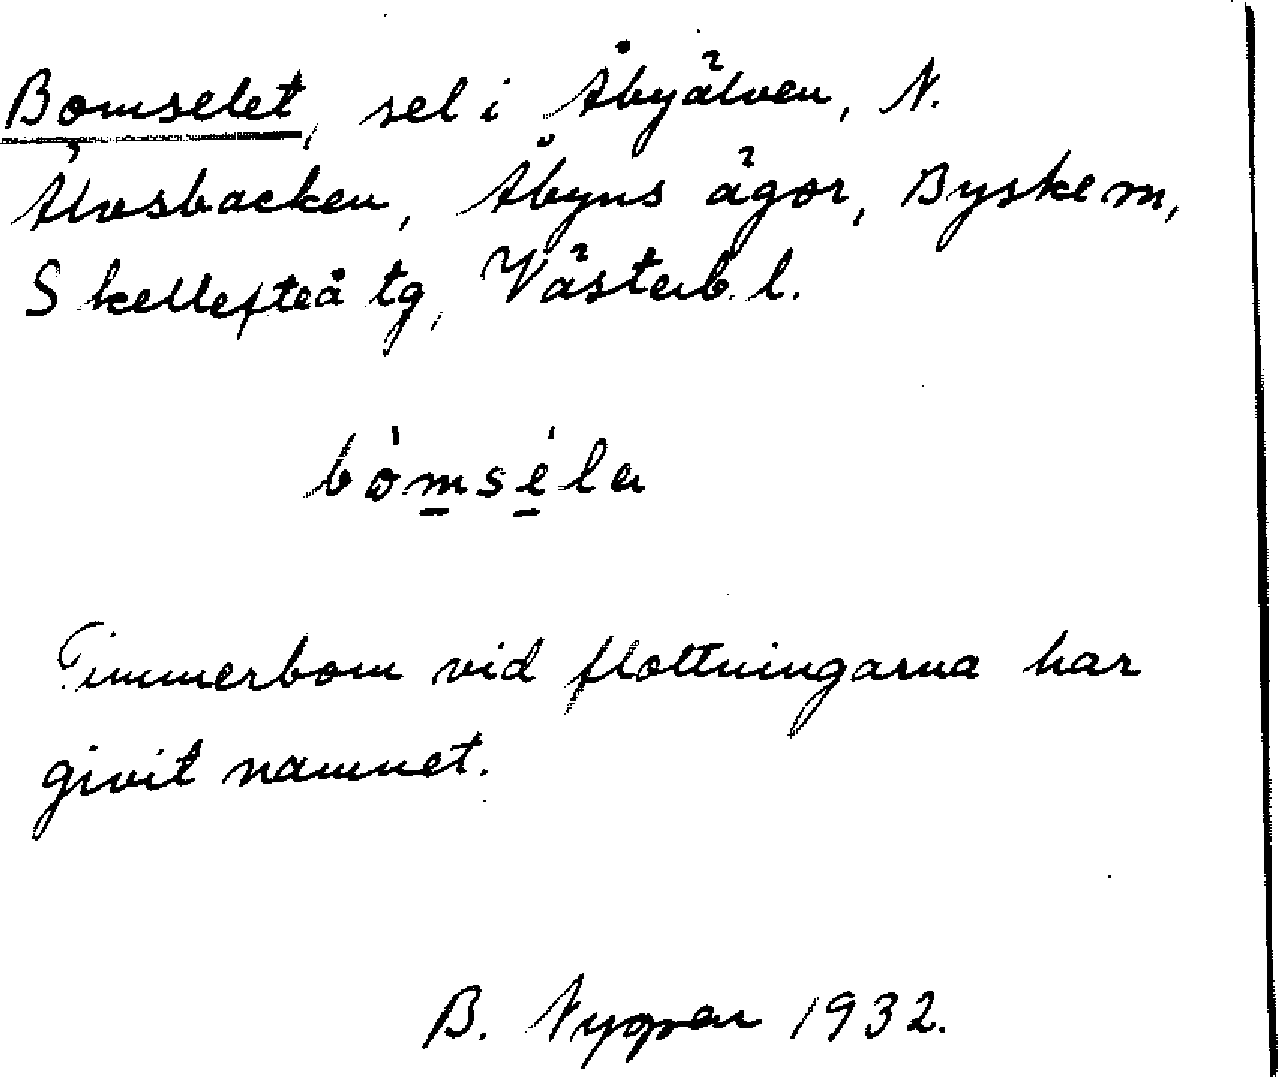 Bomselet, sel i Åbyälven, N.
Älvsbacken, Åbyns ägor, Byske sn,
Skellefteå tg, Västerb. l.
bòmséla
Timmerbom vid flottningarna har
givit namnet.
B. Nygren 1932.